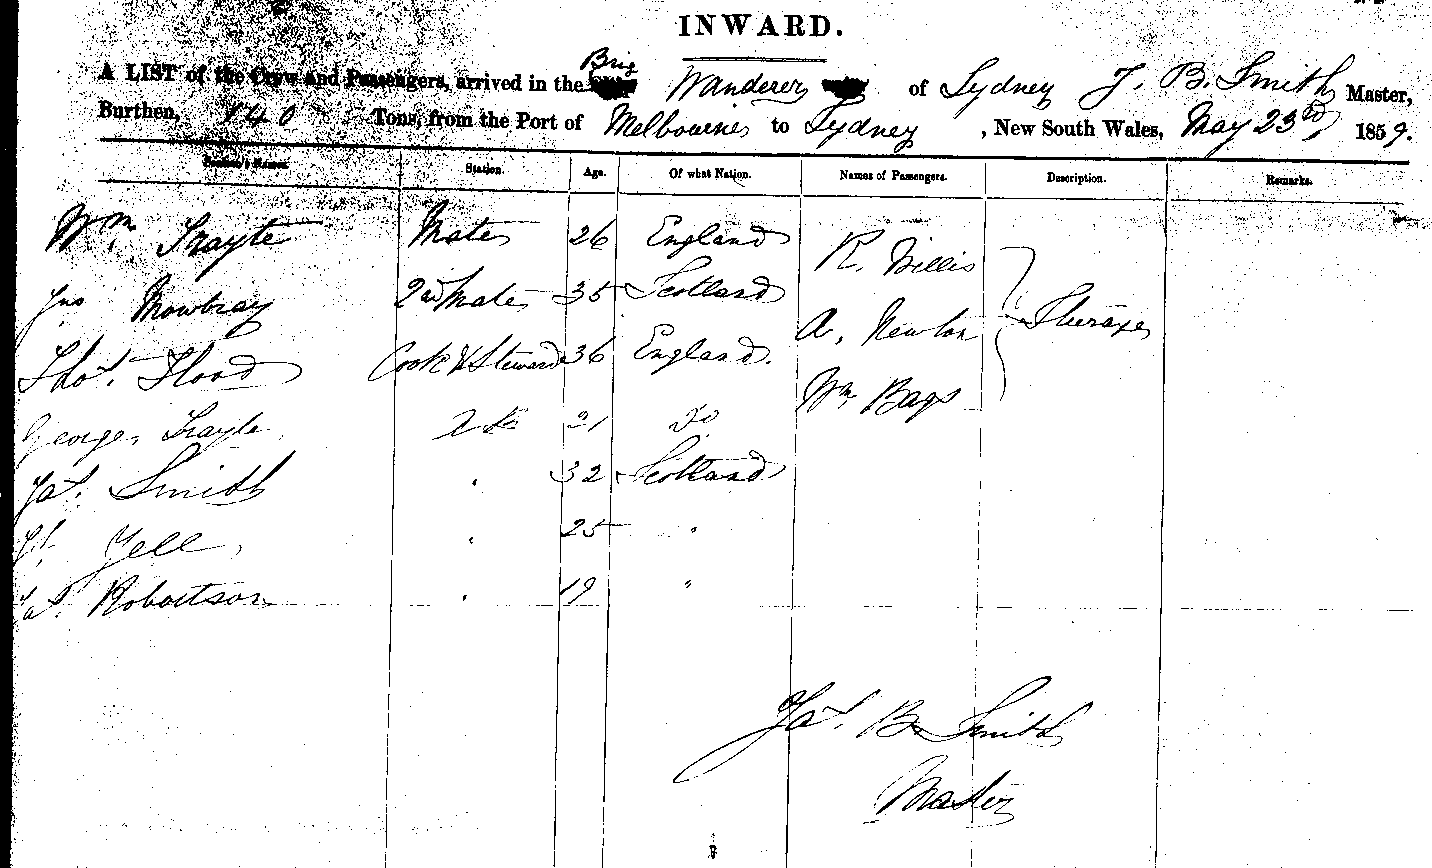 INWARD.
A LIST of the Crew and Passengers, arrived in the Brig Wanderer of Sydney J. B. Smith Master,
Burthen, 140 Tons, from the Port of Melbourne to Sydney, New South Wales, May 23rd 1859.
Station. Age. Of what Nation. Names of Passengers. Description. Remarks.
Wm Trayte Mate 26 England R. Willis
Jno Mowbray 2nd Mate 35 Scotland
A. Newton Steerage
Thos. Flood Cook & Steward 36 England.
Wm Bags
George Trayte AB 21 Do
Jas. Smith " 32 Scotland
Yell " 25 "
Jas. Robertson " 19 "
Jas. B. Smith
Master